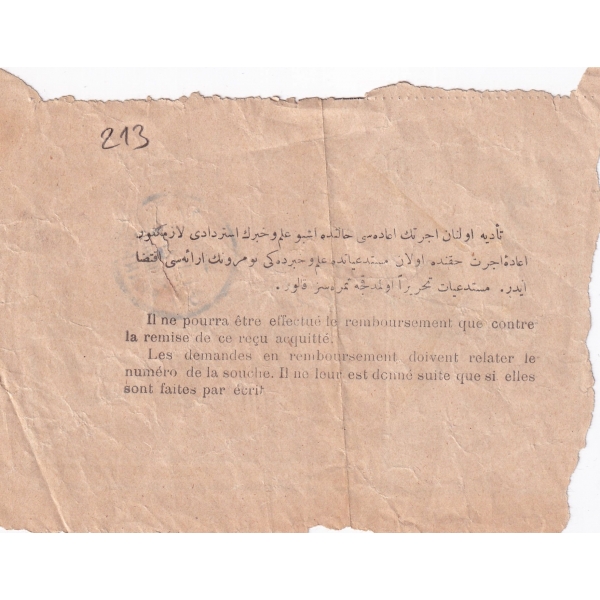 213
تأديه اولنان اجرتك اعاده‌سى حالنده اشبو علم و خبرك استردادى لازم كلور
اعادۀ اجرت حقنده اولان مستدعياتده علم و خبرده‌كى نومرونك ارائه‌سى اقتضا
ايدر. مستدعيات تحريراً اولمدقجه ثمره‌سز قالور.
Il ne pourra être effectué le remboursement que contre
la remise de ce reçu acquitté.
Les demandes en remboursement doivent relater le
numéro de la souche. Il ne leur est donné suite que si elles
sont faites par écrit